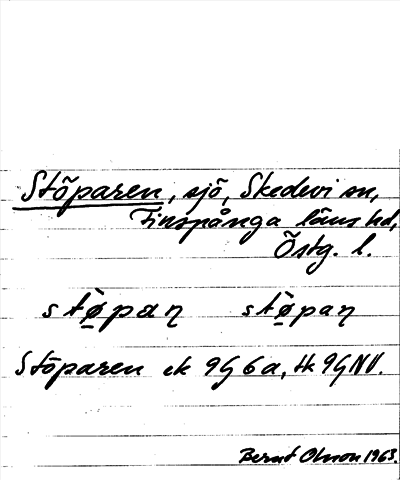 Stöparen, sjö, Skedevi sn,
Finspånga läns hd,
Östg. l.
stø̱̀paŋ stø̱̀paŋ
Stöparen ek 9G 6a, tk 9GNV.
Bernt Olsson 1963.